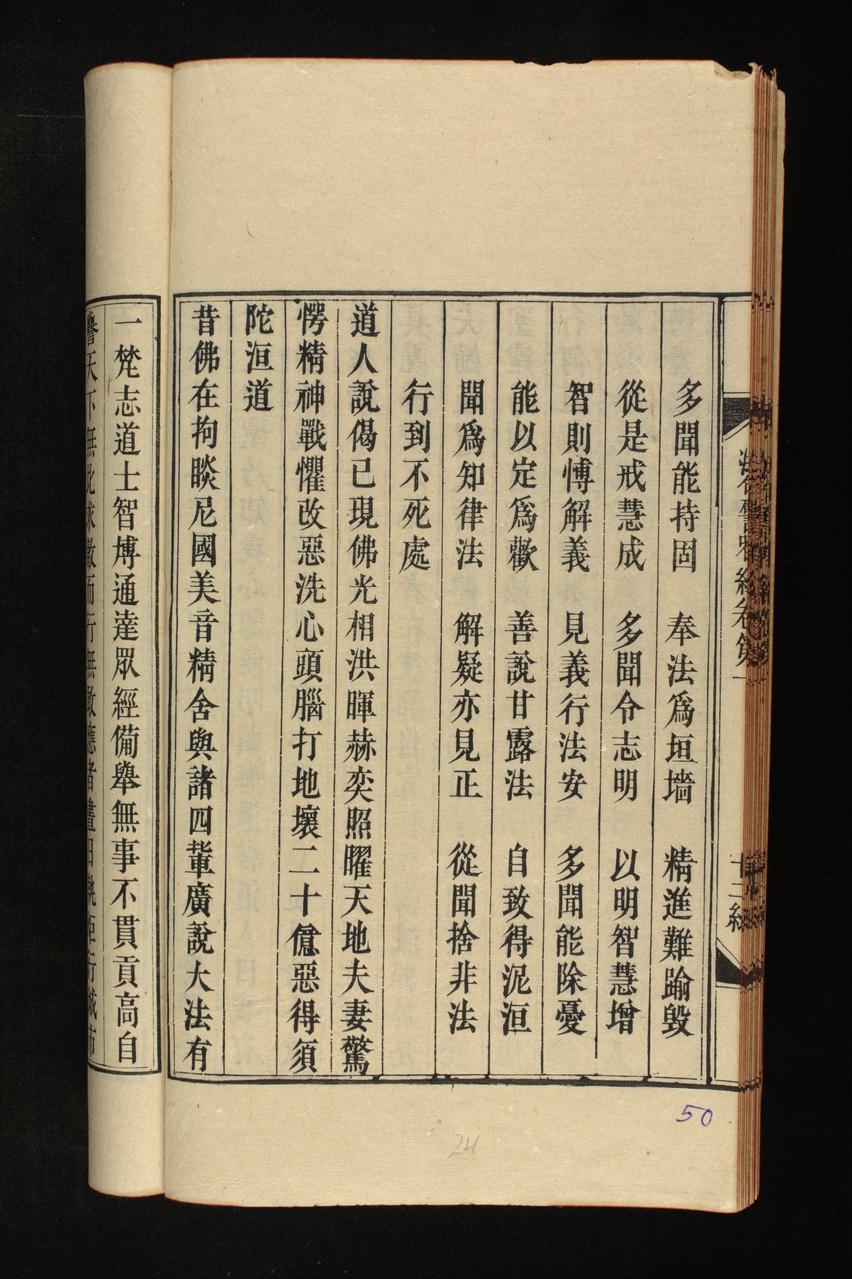 多聞能持固　奉法爲垣墻　精進難踰毀
從是戒慧成　多聞令志明　以明智慧增
智則愽解義　見義行法安　多聞能除憂
能以定爲歡　善說甘露法　自致得泥洹
聞爲知律法　解疑亦見正　從聞捨非法
行到不死處
道人說偈已現佛光相洪暉赫奕照曜天地夫妻驚
愕精神戰懼改惡洗心頭腦打地壞二十億惡得須
陀洹道
昔佛在拘睒尼國美音精舍與諸四軰廣說大法有
一梵志道士智博通達眾經備舉無事不貫貢高自
譽天下無
50
24